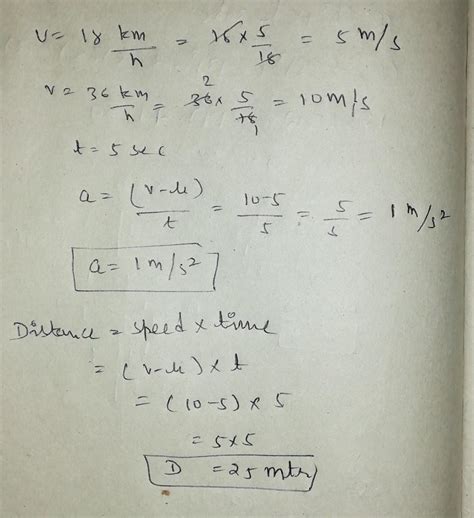 u = 18 km/h = 18 × 5/18 = 5 m/s
v = 36 km/h = 36 × 5/18 = 10 m/s
2
1
t = 5 sec
a = (v-u)/t = 10-5/5 = 5/5 = 1 m/s²
a = 1 m/s²
Distance = speed × time
= (v-u) × t
= (10-5) × 5
= 5×5
D = 25 mtr